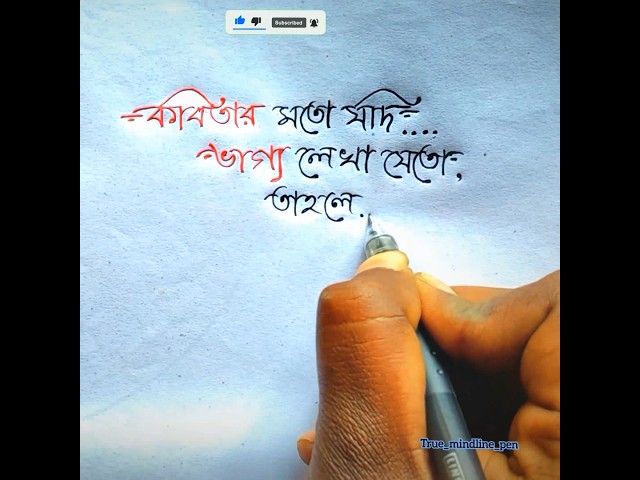 Subscribed
কবিতার মতো যদি....
ভাগ্য লেখা যেতো,
তাহলে.
True_mindline_pen
UNI